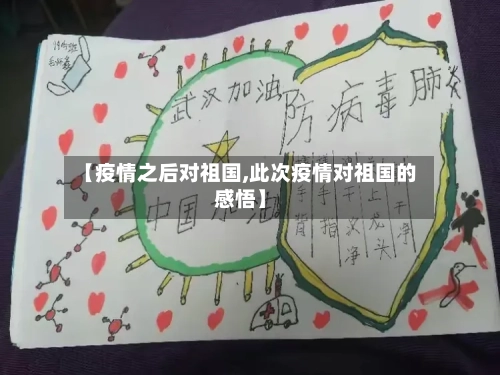 武汉加油
防病毒肺炎
【疫情之后对祖国,此次疫情对祖国的
感悟】
中国加油
手背
手指
干净
关上龙头
干净